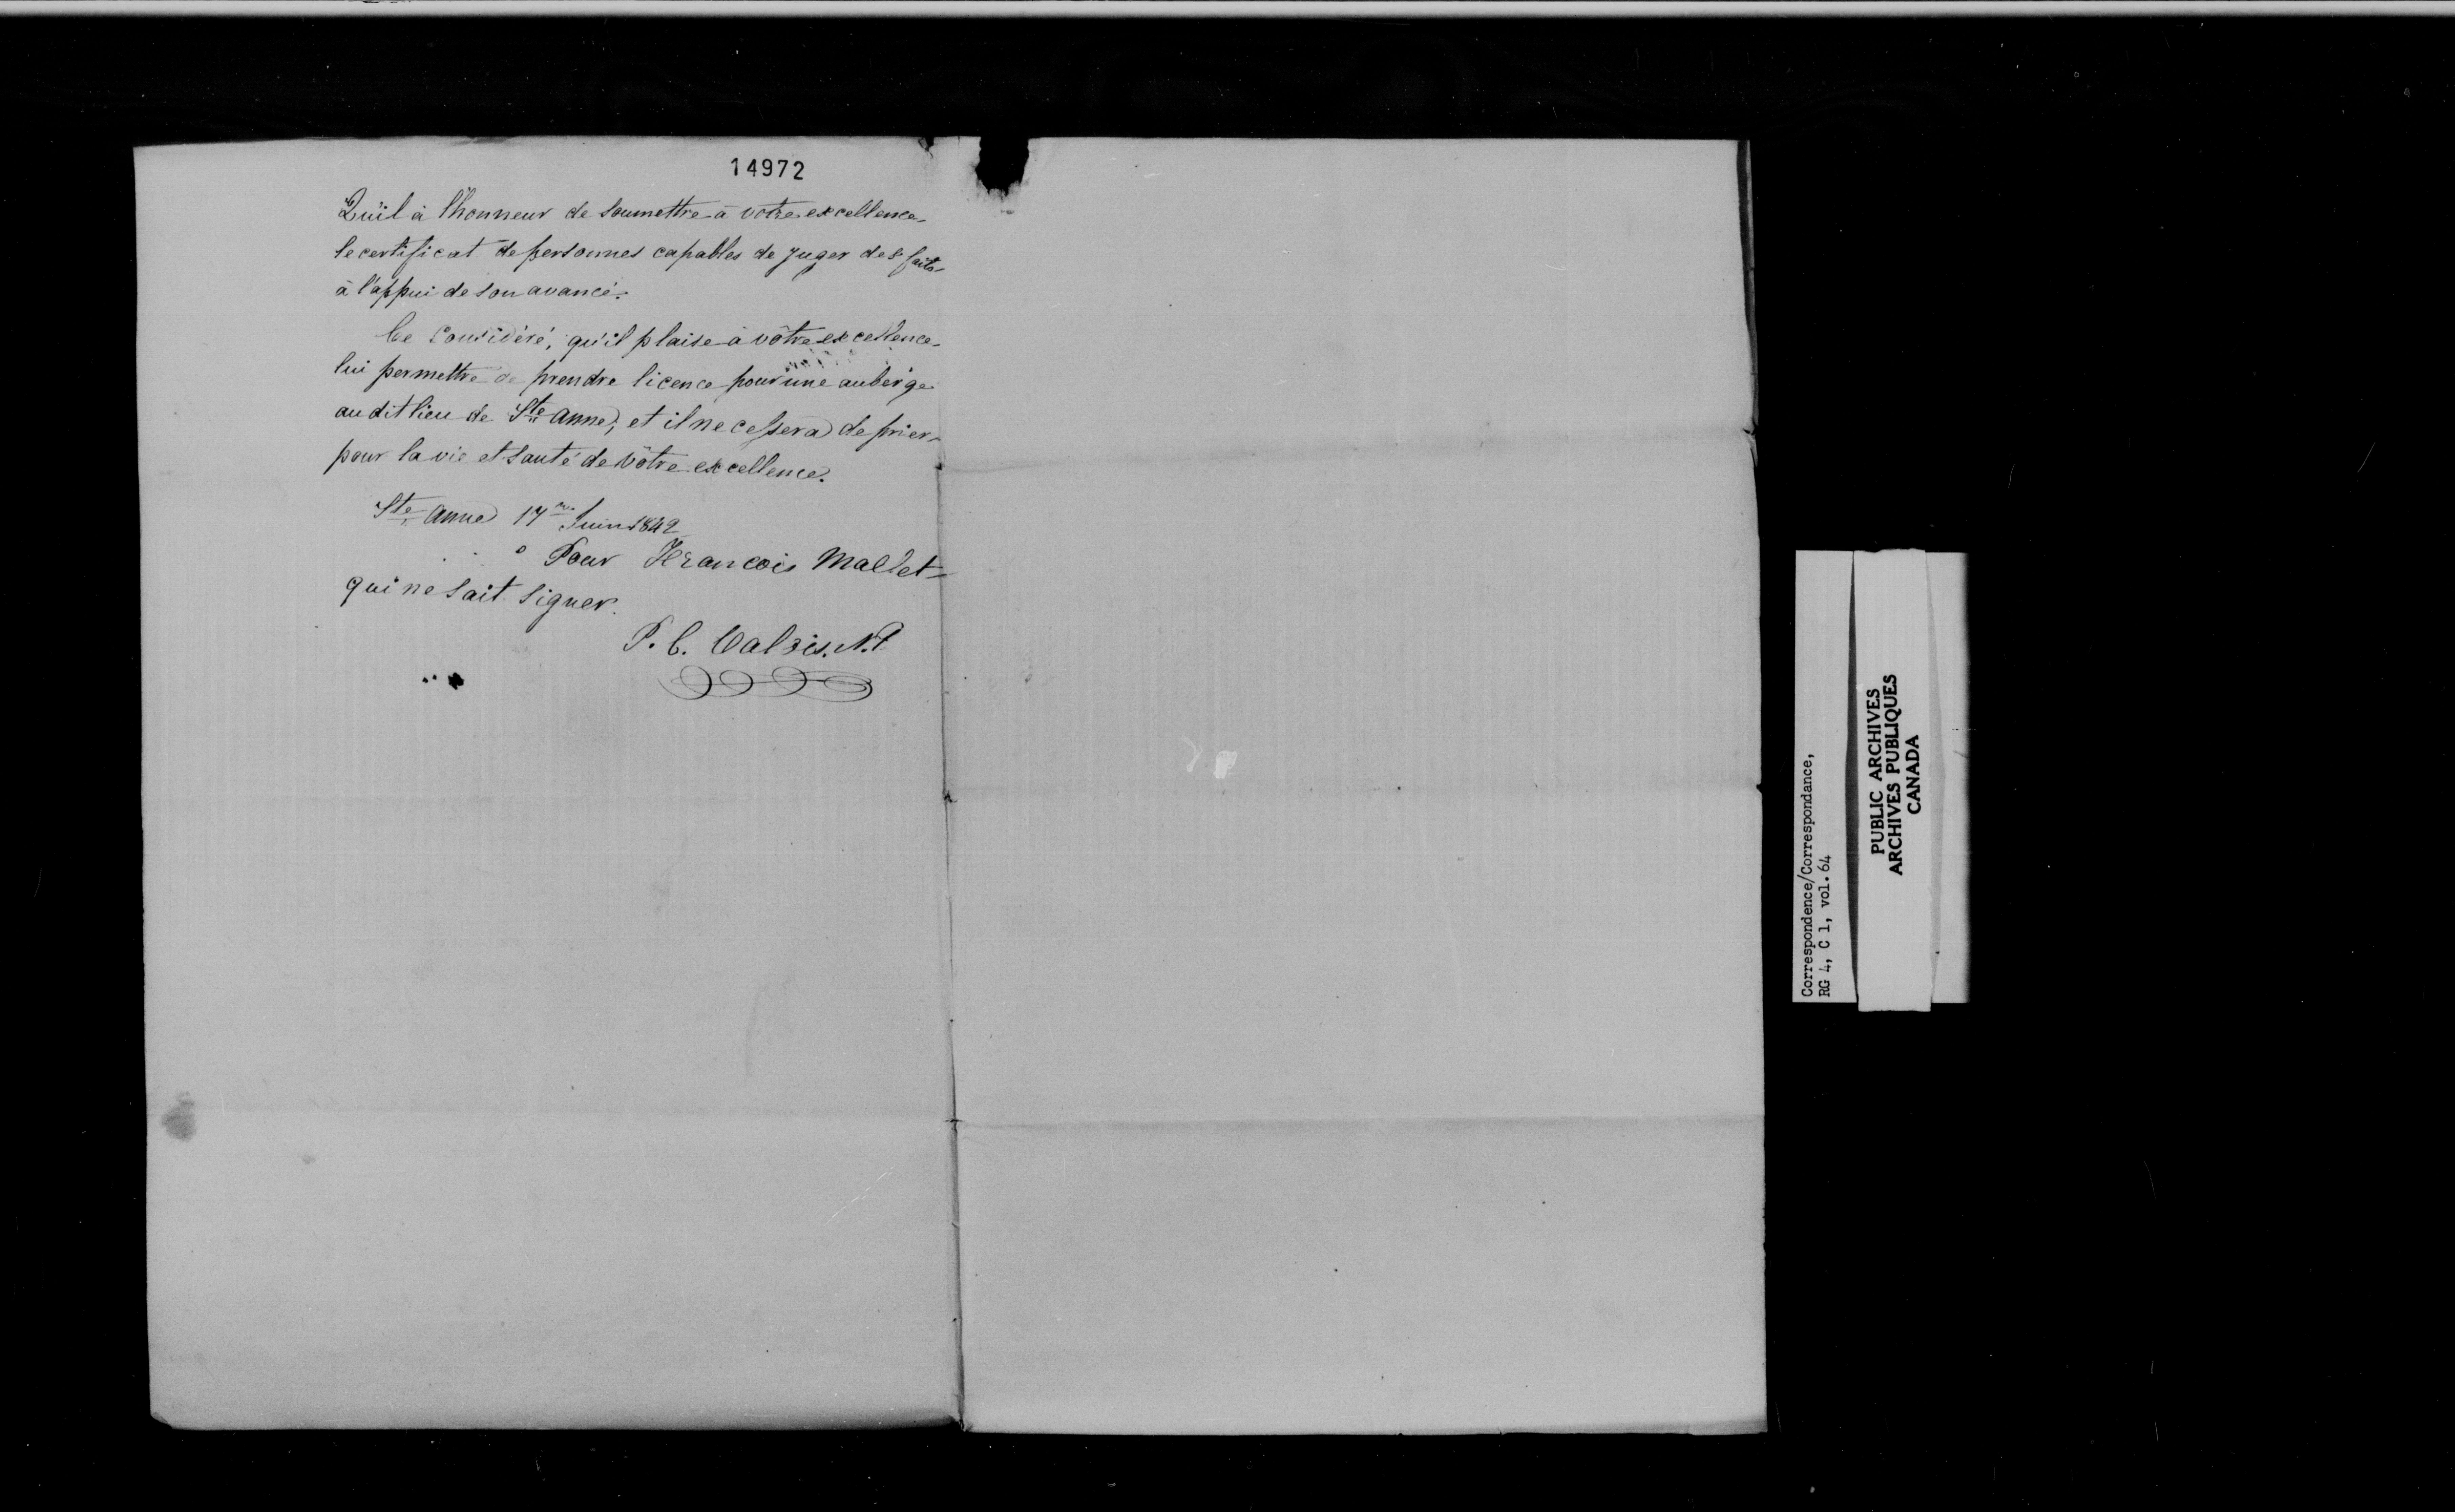 14972
Qu'il à l'honneur de soumettre à votre excellence
le certificat de personnes capables de juger des faits
à l'appui de son avancé.
Ce considéré, qu'il plaise à vôtre excellence
lui permettre de prendre licence pour une auberge
au dit lieu de Ste Anne, et il ne cessera de prier
pour la vie et santé de vôtre excellence.
Ste Anne 17me Juin 1842
Pour Francois Mallet
qui ne sait signer.
P. C. Valois. N.P
Correspondence/Correspondance,
RG 4, C 1, vol. 64
PUBLIC ARCHIVES
ARCHIVES PUBLIQUES
CANADA